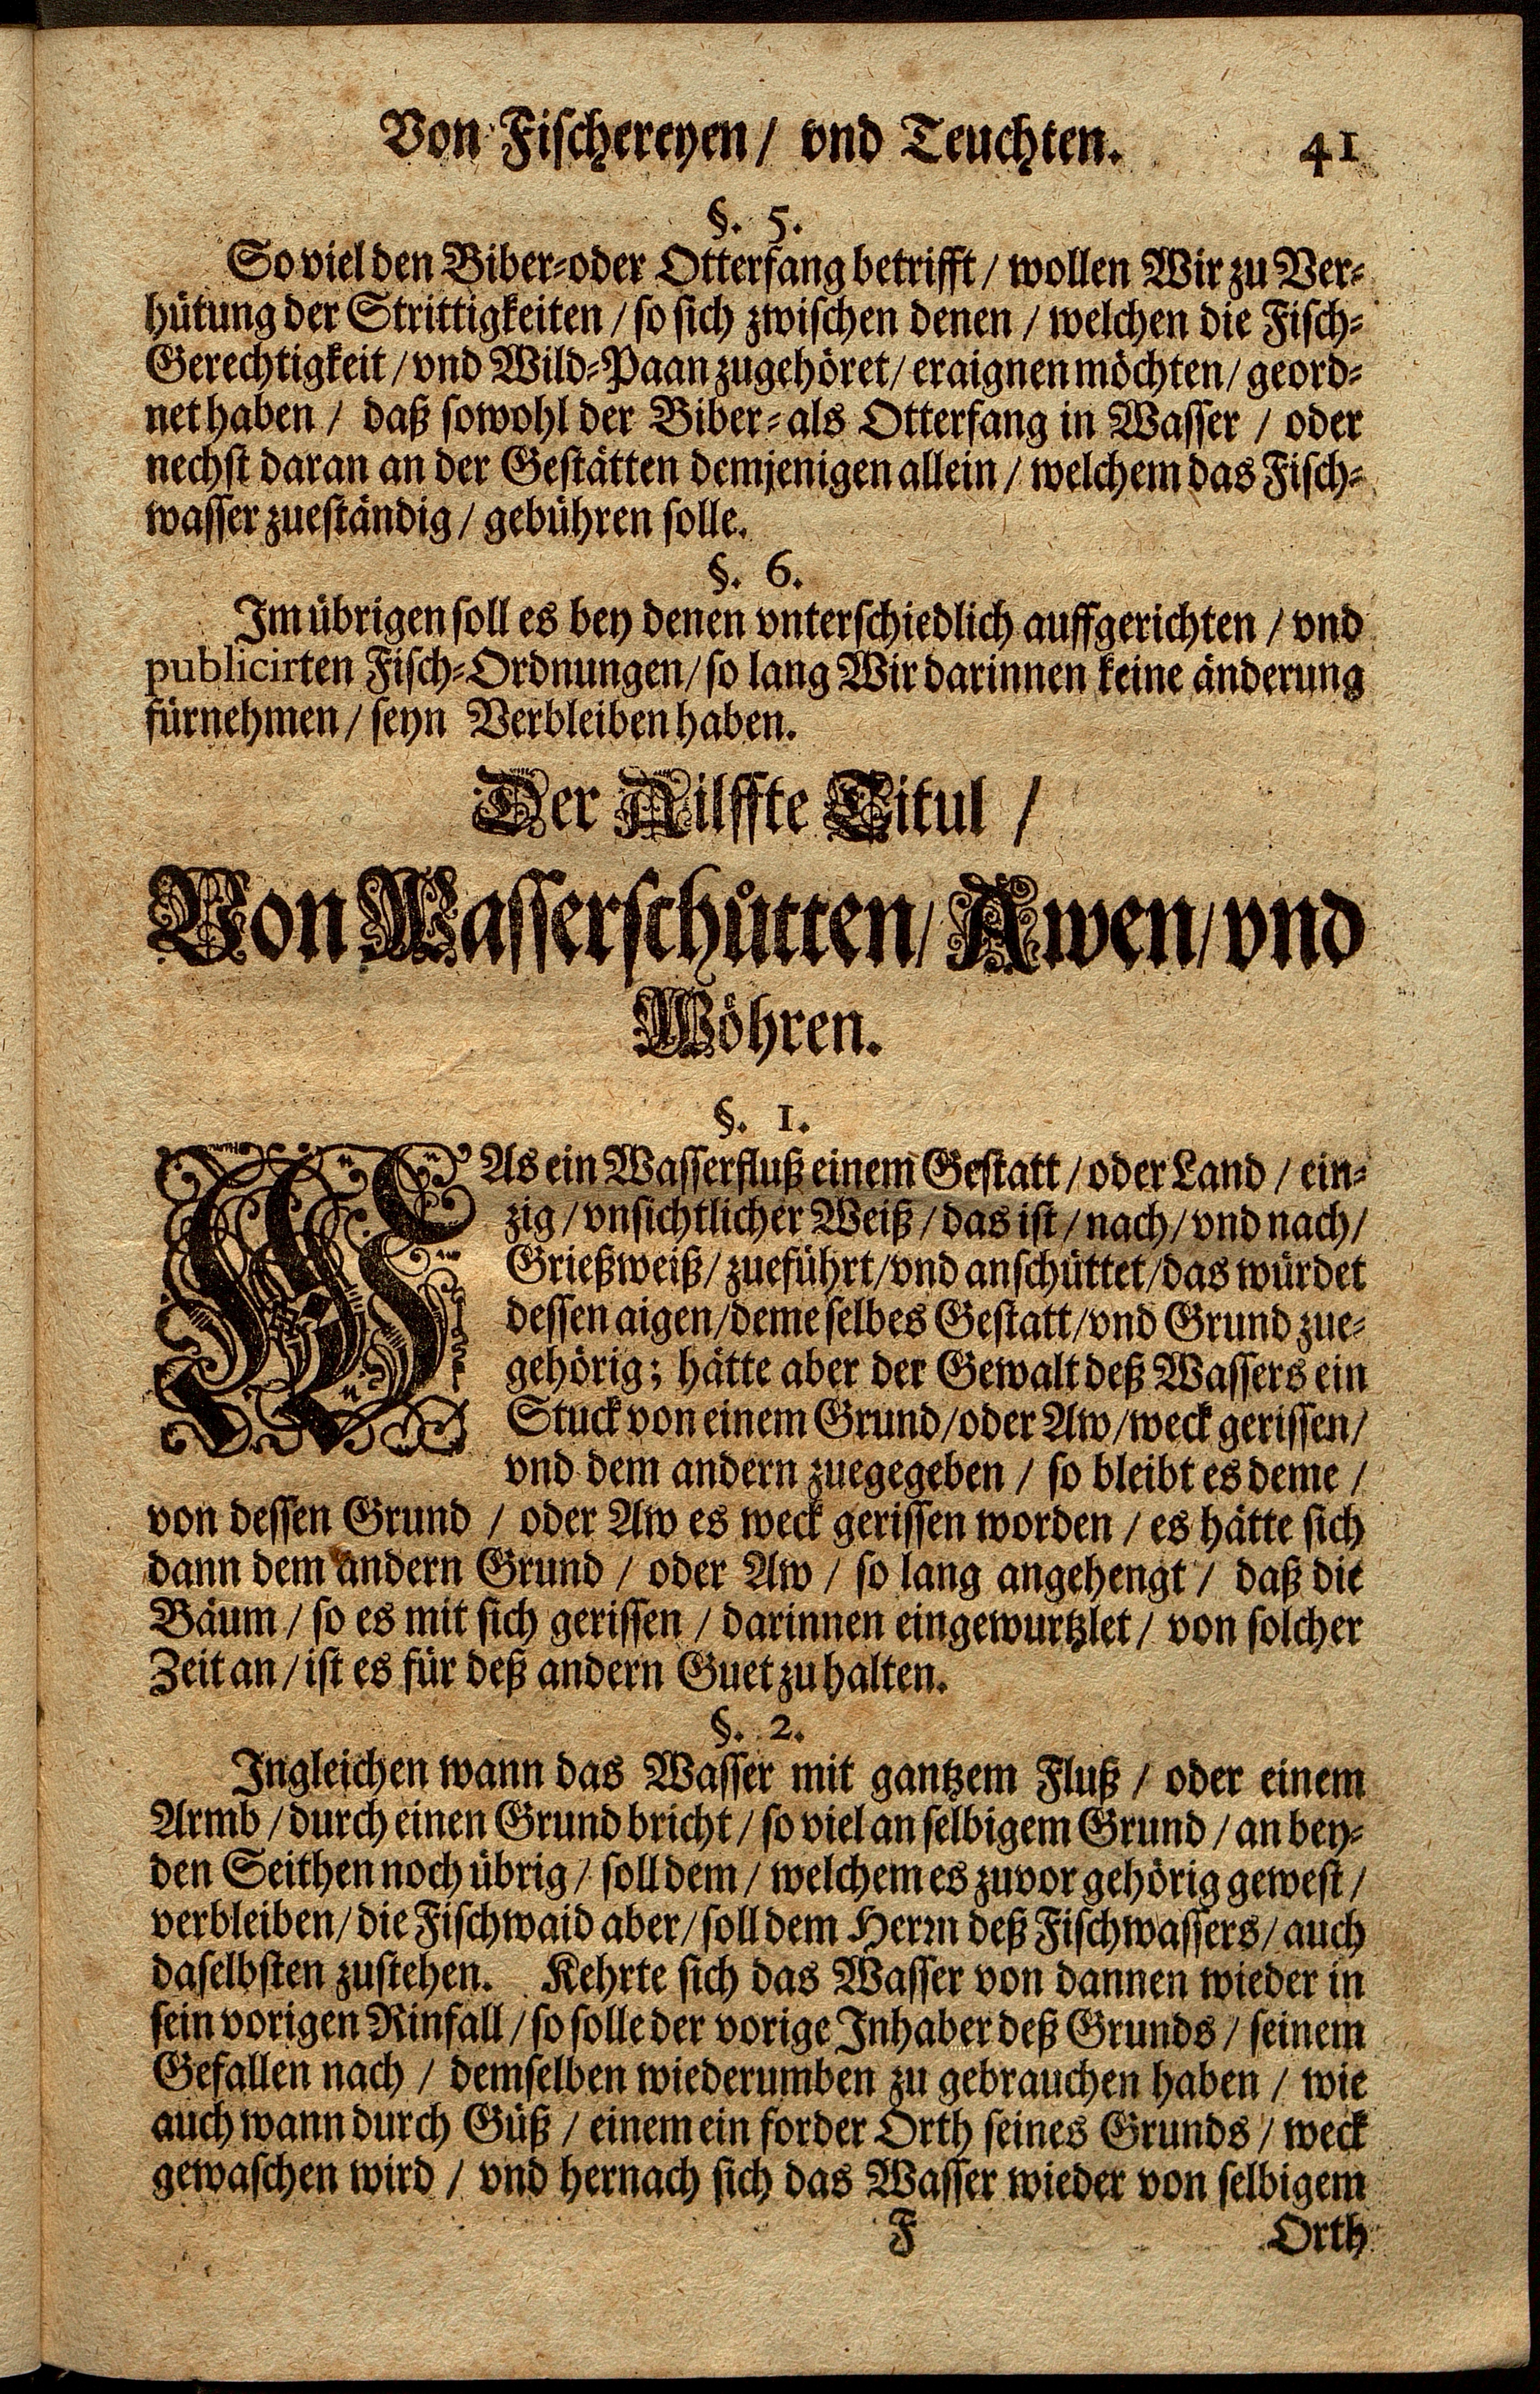 Von Fischereyen/ vnd Teuchten. 41
§. 5.
So viel den Biber-oder Otterfang betrifft / wollen Wir zu Ver-
hütung der Strittigkeiten / so sich zwischen denen / welchen die Fisch-
Gerechtigkeit / vnd Wild-Paan zugehöret / eraignen möchten / geord-
net haben / daß sowohl der Biber- als Otterfang in Wasser / oder
nechst daran an der Gestätten demjenigen allein / welchem das Fisch-
wasser zueständig / gebühren solle.
§. 6.
Im übrigen soll es bey denen vnterschiedlich auffgerichten / vnd
publicirten Fisch-Ordnungen / so lang Wir darinnen keine änderung
fürnehmen / seyn Verbleiben haben.
Der Ailffte Titul /
Von Wasserschütten / Awen / vnd
Wöhren.
§. 1.
WAs ein Wasserfluß einem Gestatt / oder Land / ein-
zig / vnsichtlicher Weiß / das ist / nach / vnd nach /
Grießweiß / zueführt / vnd anschüttet / das würdet
dessen aigen / deme selbes Gestatt / vnd Grund zue-
gehörig; hätte aber der Gewalt deß Wassers ein
Stuck von einem Grund / oder Aw / weck gerissen /
vnd dem andern zuegegeben / so bleibt es deme /
von dessen Grund / oder Aw es weck gerissen worden / es hätte sich
dann dem andern Grund / oder Aw / so lang angehengt / daß die
Bäum / so es mit sich gerissen / darinnen eingewurtzlet / von solcher
Zeit an / ist es für deß andern Guet zu halten.
§. 2.
Ingleichen wann das Wasser mit gantzem Fluß / oder einem
Armb / durch einen Grund bricht / so viel an selbigem Grund / an bey-
den Seithen noch übrig / soll dem / welchem es zuvor gehörig gewest /
verbleiben / die Fischwaid aber / soll dem Herrn deß Fischwassers / auch
daselbsten zustehen. Kehrte sich das Wasser von dannen wieder in
sein vorigen Rinfall / so solle der vorige Inhaber deß Grunds / seinem
Gefallen nach / demselben wiederumben zu gebrauchen haben / wie
auch wann durch Güß / einem ein forder Orth seines Grunds / weck
gewaschen wird / vnd hernach sich das Wasser wieder von selbigem
F Orth